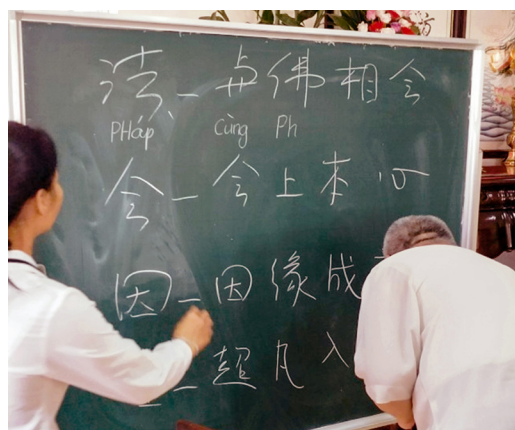 法 _ 与佛相会
PHáp Cùng Ph
会 _ 会上本心
因 _ 因缘成
_ 超凡入